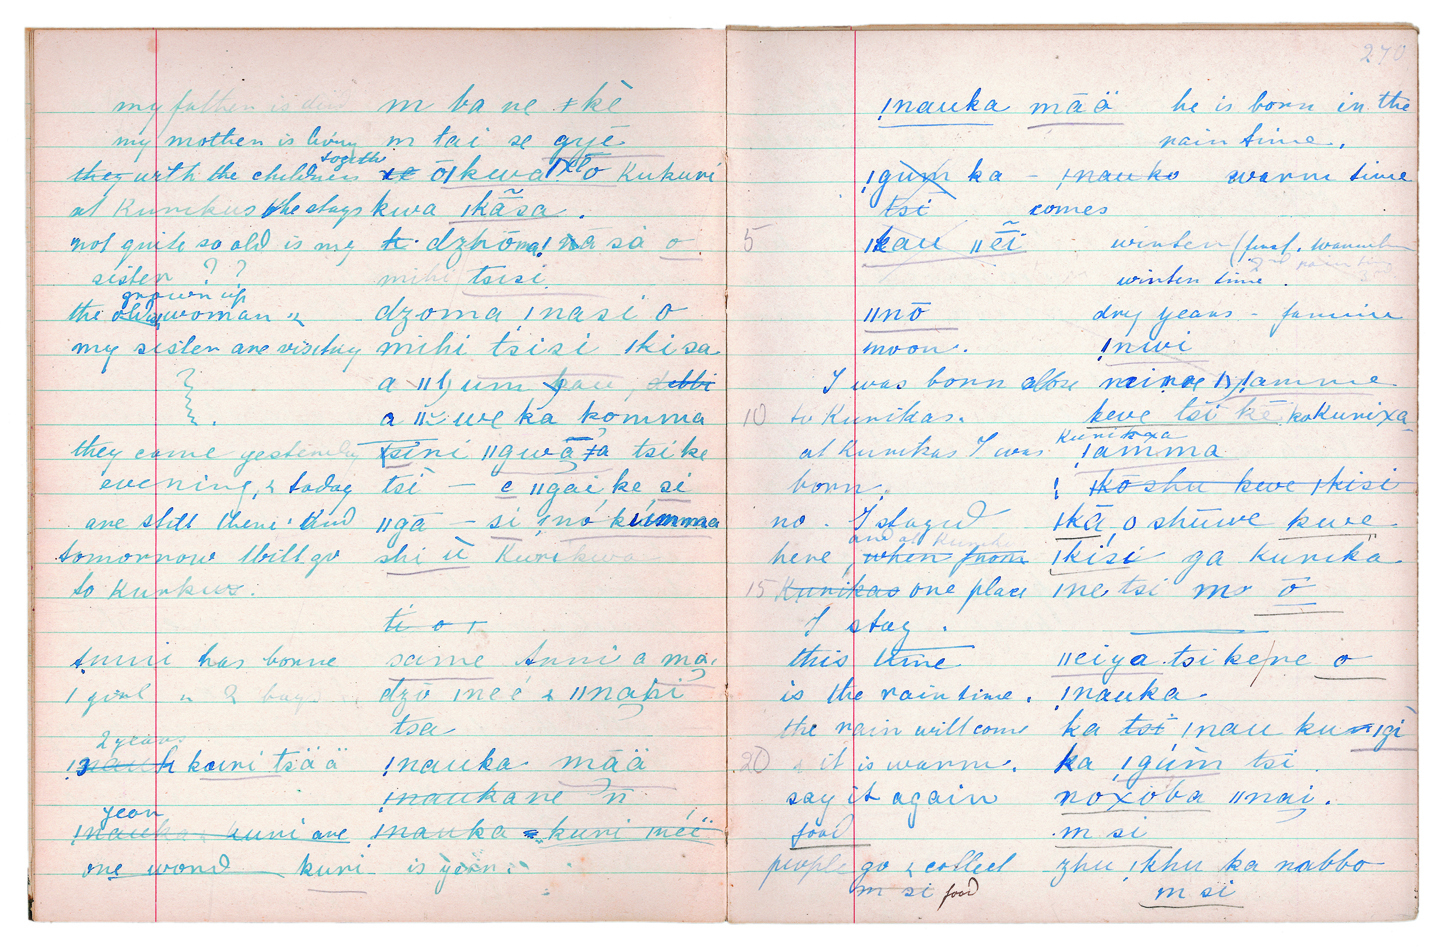 my father is dead m ba ne ǂkē
my mother is living m tai se gyē
together
they with the children is ō|kwa |xē o Kukuri
at Kurikus she stays kwa |kãsa .
not quite so old is my dzhōma !nasi o
sister ? ? mihi tsisi
grown up
the old woman dzoma |nasi o
my sister are visiting mihi tsisi |kisa
? a ǁgum kau, debbi
a ǁ we ka komma
they come yesterday tsini ǁgwā ǂa tsi ke
evening, & today tsi — e ǁgai ke si
are still there. And ǁgā — si |no kumma
tomorrow I will go shi ù Kurikwa
to Kurkus.
ti o r
has borne same Anni a ma,
1 girl & boy dzō |neé & ǁnahi
tsa
2 years
kuri tsää !nauka mää
!naukane n
year
!nauka & kuri are !nauka = kuri
one word kuri is year.
270
!nauka māä he is born in the
rain time.
!gum ka - !nauko warm time
tsi comes
5 |kau ǁẽi winter (first. warmth
winter time.
ǁnō dry years - famine
moon. !nwi
I was born !amme
10 to Kurikas. keve tsi kē ko Kurixa
Kurikoxa
at Kurikas I was !amma
born. ! |ko shu keve |kisi
no. I stayed |kā, o shūwe kwe
and at
here, when from |kisi ga Kurika
15 Kurikas one place |ne tsi mo ō
I stay.
this time ǁeiya tsi ke/ne o
is the rain time. !nauka.
the rain will come ka tsi !nau ku |gi
20 & it is warm. ka !gùm tsi
say it again noxoba ǁnai.
food m si
people go & collect zhu !khu ka nabbo
m si food m si